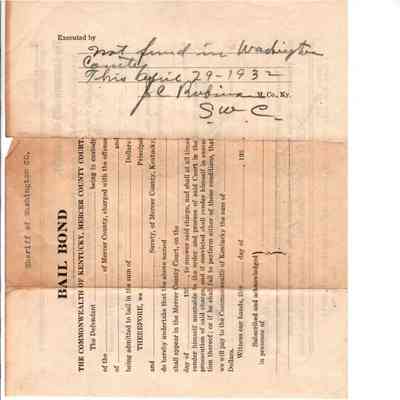 Executed by
not found in Washington
County
This April 29-1932
J C Robins M. Co. Ky.
S. W. C.
Sheriff of Washington Co.
BAIL BOND
THE COMMONWEALTH OF KENTUCKY, MERCER COUNTY COURT.
The Defendant being in custody
of the of Mercer County, charged with the offense
of and
being admitted to bail in the sum of Dollars.
THEREFORE, we Principal
and Surety, of Mercer County, Kentucky,
do hereby undertake that the above named
shall appear in the Mercer County Court, on the
day of 192 , to answer said charge, and shall at all times
render himself amenable to the order and process of said Court in the
prosecution of said charge, and if convicted shall render himself in execu-
tion thereof; or if he shall fail to perform either of these conditions, that
we will pay to the Commonwealth of Kentucky the sum of
Dollars.
Witness our hands, this day of , 192
Subscribed and acknowledged
in presence of